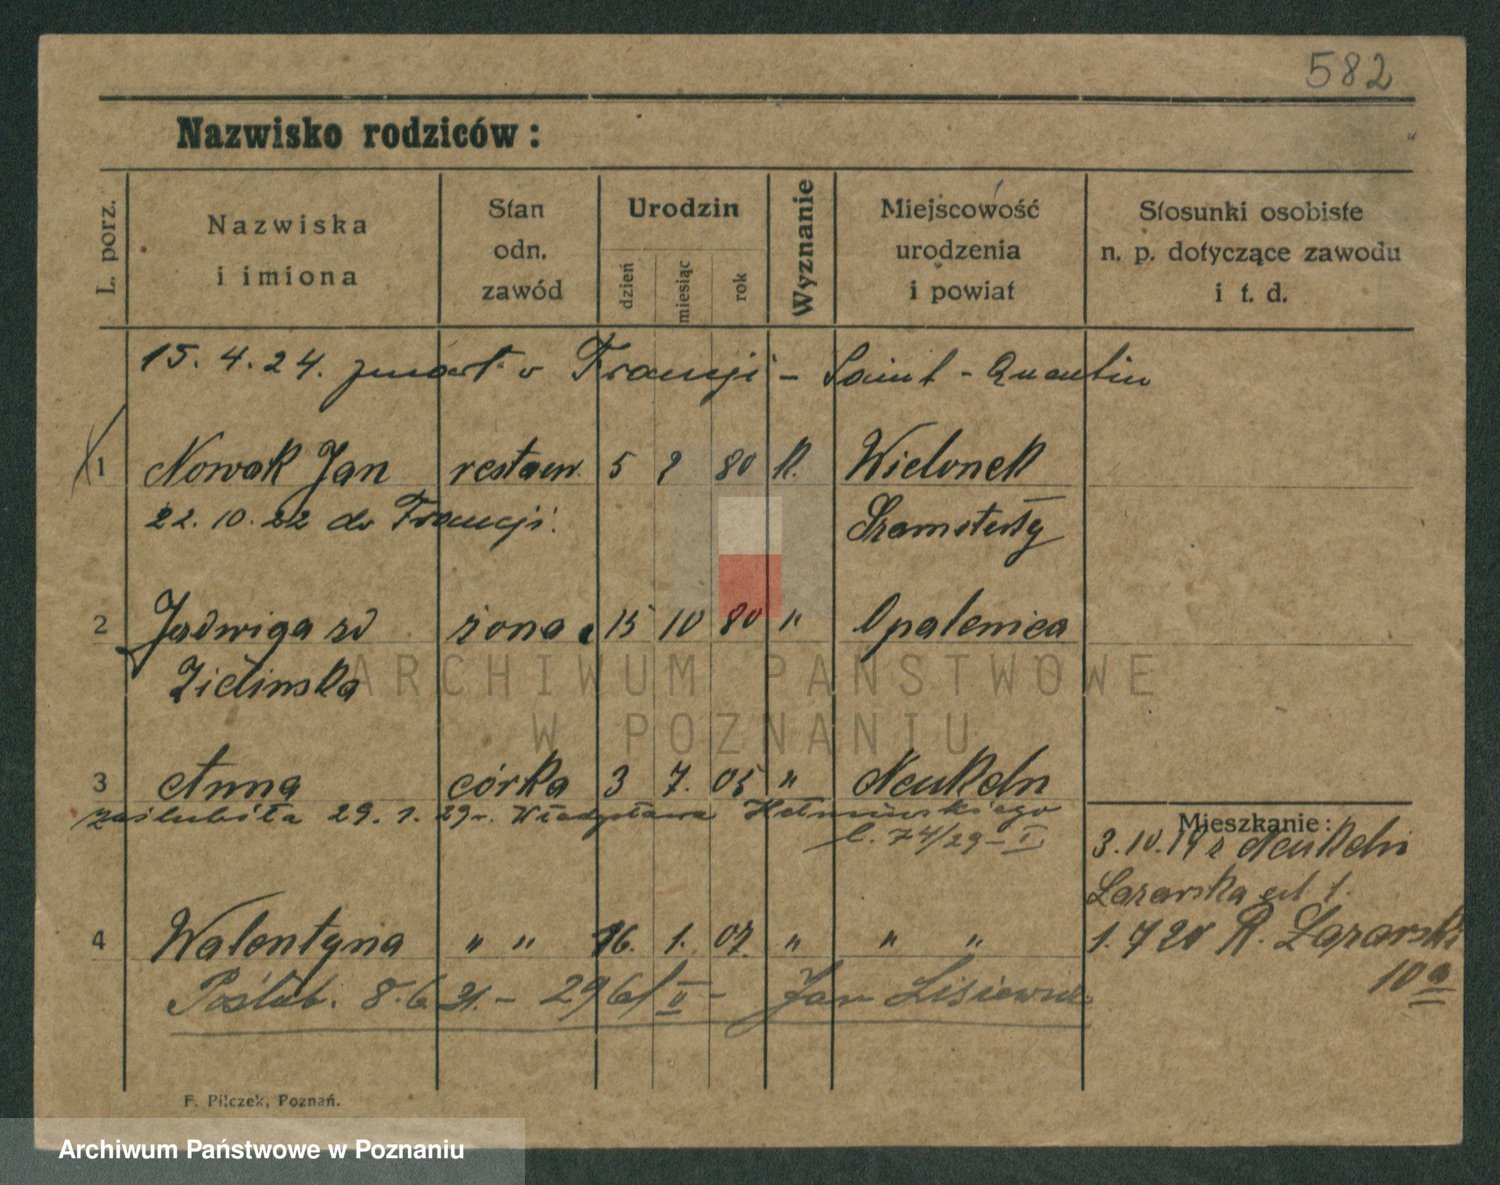 582
Nazwisko rodziców:
L. porz.
Nazwiska
i imiona
Stan
odn.
zawód
Urodzin
dzień
miesiąc
rok
Wyznanie
Miejscowość
urodzenia
i powiat
Stosunki osobiste
n. p. dotyczące zawodu
i t. d.
15. 4. 24. zmarł w Francji - Saint-Quentin
1 Nowak Jan restaur. 5 2 80 k. Wielonek
22. 10. 22 do Francji. Szamotuły
2 Jadwiga zd żona 15 10 80 " Opalenica
Zielinska
ARCHIWUM PAŃSTWOWE
W POZNANIU
3 Anna córka 3 7. 05 " Neukeln
zaślubiła 29. 1. 29r. Władysława
l. 74/29-I
Mieszkanie:
3. 10. 19 z Neukeln
Lazarska
4 Walentyna " " 16. 1. 07. " " "
1. 7 20 R. Łazarski
10a
Poślub. 8. 6 31. - 296/II - Jan
F. Pilczek, Poznań.
Archiwum Państwowe w Poznaniu